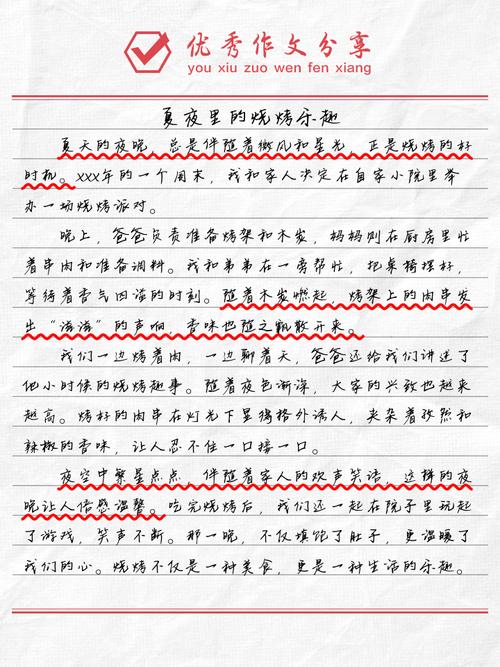 优秀作文分享
you xiu zuo wen fen xiang
夏夜里的烧烤乐趣
夏天的夜晚，总是伴随着微风和星光，正是烧烤的好
时机。xxx年的一个周末，我和家人决定在自家小院里举
办一场烧烤派对。
晚上，爸爸负责准备烤架和木炭，妈妈则在厨房里忙
着串肉和准备调料。我和弟弟在一旁帮忙，把桌椅摆好，
等待着香气四溢的时刻。随着木炭燃起，烤架上的肉串发
出“滋滋”的声响，香味也随之飘散开来。
我们一边烤着肉，一边聊着天，爸爸还给我们讲述了
他小时候的烧烤趣事。随着夜色渐深，大家的兴致也越来
越高。烤好的肉串在灯光下显得格外诱人，夹杂着孜然和
辣椒的香味，让人忍不住一口接一口。
夜空中繁星点点，伴随着家人的欢声笑语，这样的夜
晚让人倍感温馨。吃完烧烤后，我们还一起在院子里玩起
了游戏，笑声不断。那一晚，不仅填饱了肚子，更温暖了
我们的心。烧烤不仅是一种美食，更是一种生活的乐趣。